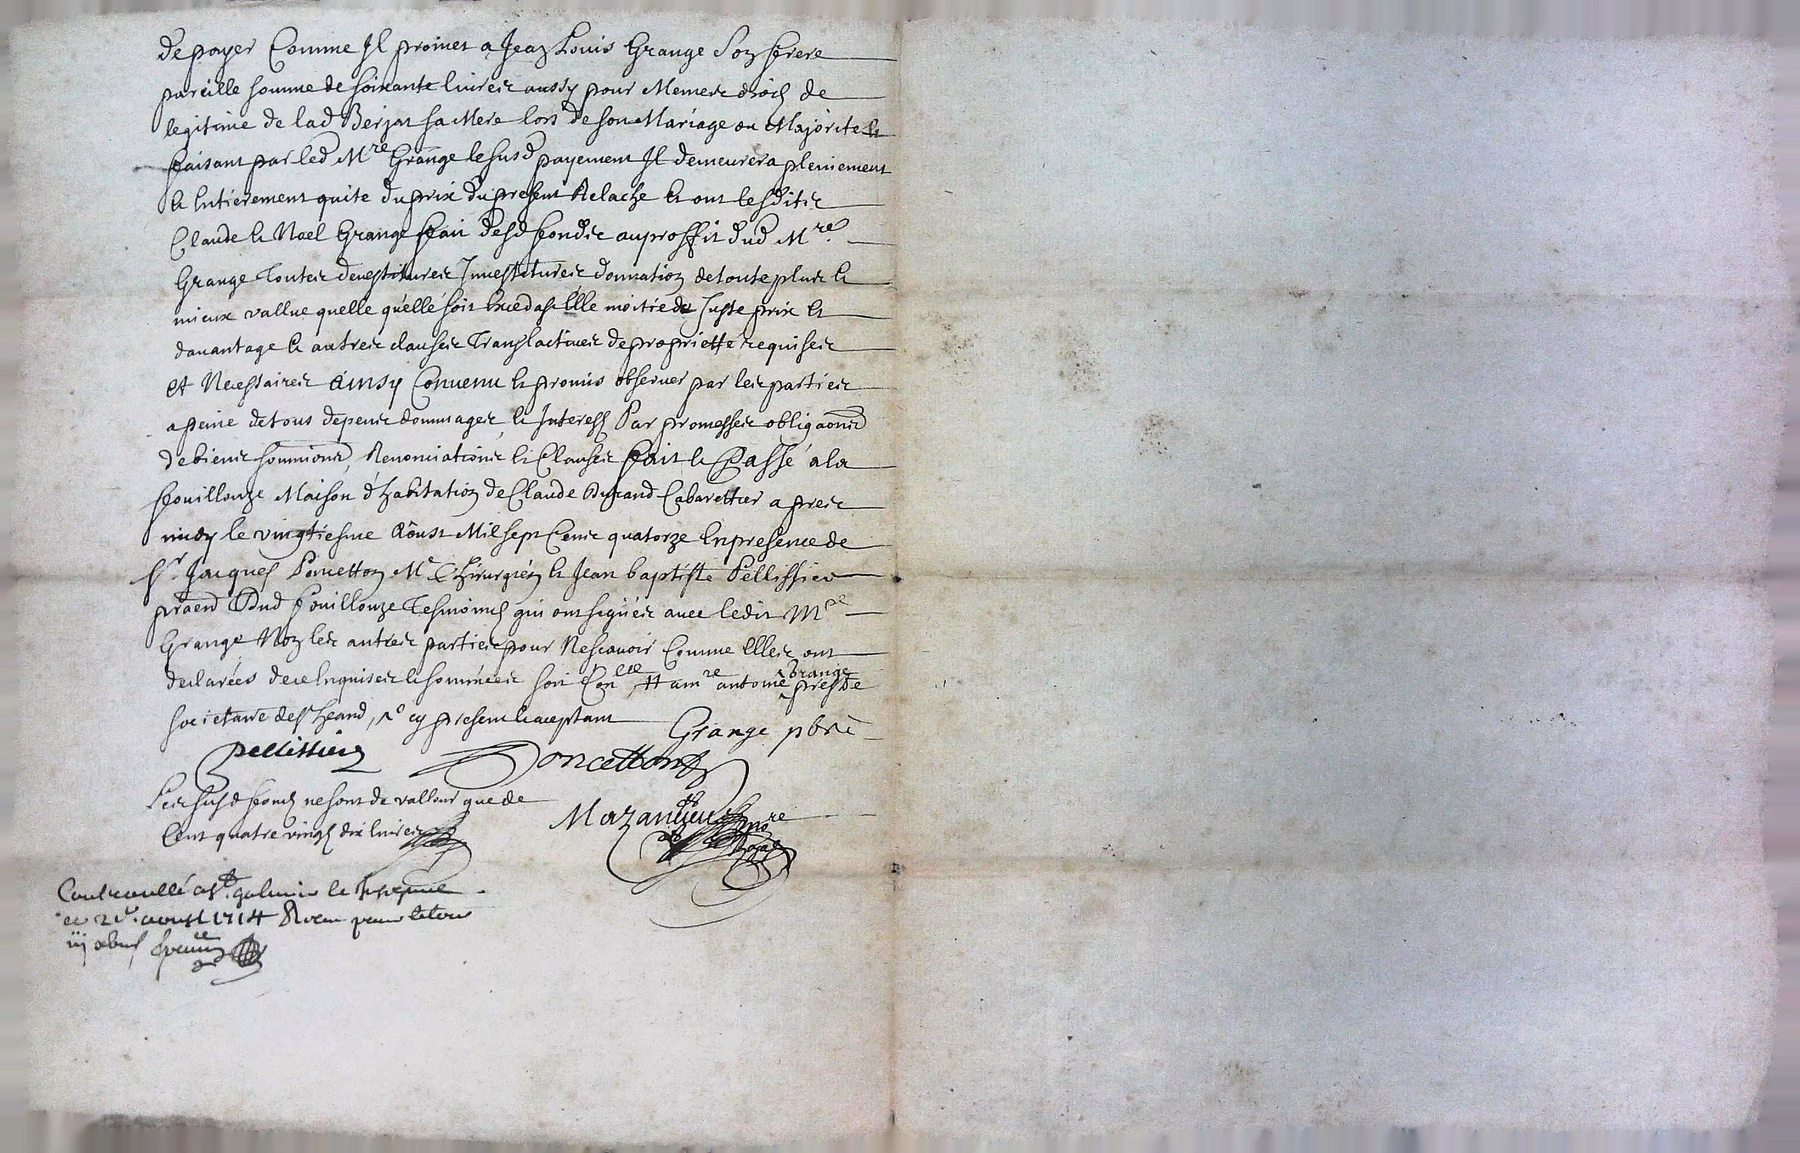 de payer Comme Il promet a Jean Louis Grange Son frere
pareille somme de soixante livres aussy pour Memes droits de
legitime de lad Berjat sa Mere lors de son Mariage ou Majorite Et
faisant par led Mre Grange le susd payement Il demeurera pleniement
Et Entierement quite du prix du present Relache Et ont lesdits
Claude Et Noel Grange fait desd fonds au proffit dud Mre
Grange Toutes devestitures Investitures donnation de toute plus Et
mieux vallue quelle quelle soit Excedast Elle moitié de Juste prix Et
davantage Et autres clauses Translatives de proprietté requises
et Necessaires Ainsy Convenu Et promis observer par les parties
a peine de tous depens dommages Et Interests Par promesses obligaons
de biens soumions, Renonciations Et Clauses fait Et Passé a la
fouillouze Maison d'habitation de Claude Durand Cabarettier apres
midy le vingtiesme Aoust Mil sept Cens quatorze En presence de
Sr. Jacques Poncetton Me Chirurgien Et Jean baptiste Pellissier
dud fouillouze Tesmoins qui ont signés avec ledit Mre
Grange Non les autres parties pour Nescavoir Comme Elles ont
declarées de ce Enquises Et sommées antoine Grange
societaire de st heand, cy present Et acceptant Grange pbre
pellissier Poncetton
Les susd fonds ne sont de valleur que de
Cent quatre vingts dix livres
Mazan
nore
Royal
Controullé a st. galmier le
aoust 1714 Receu